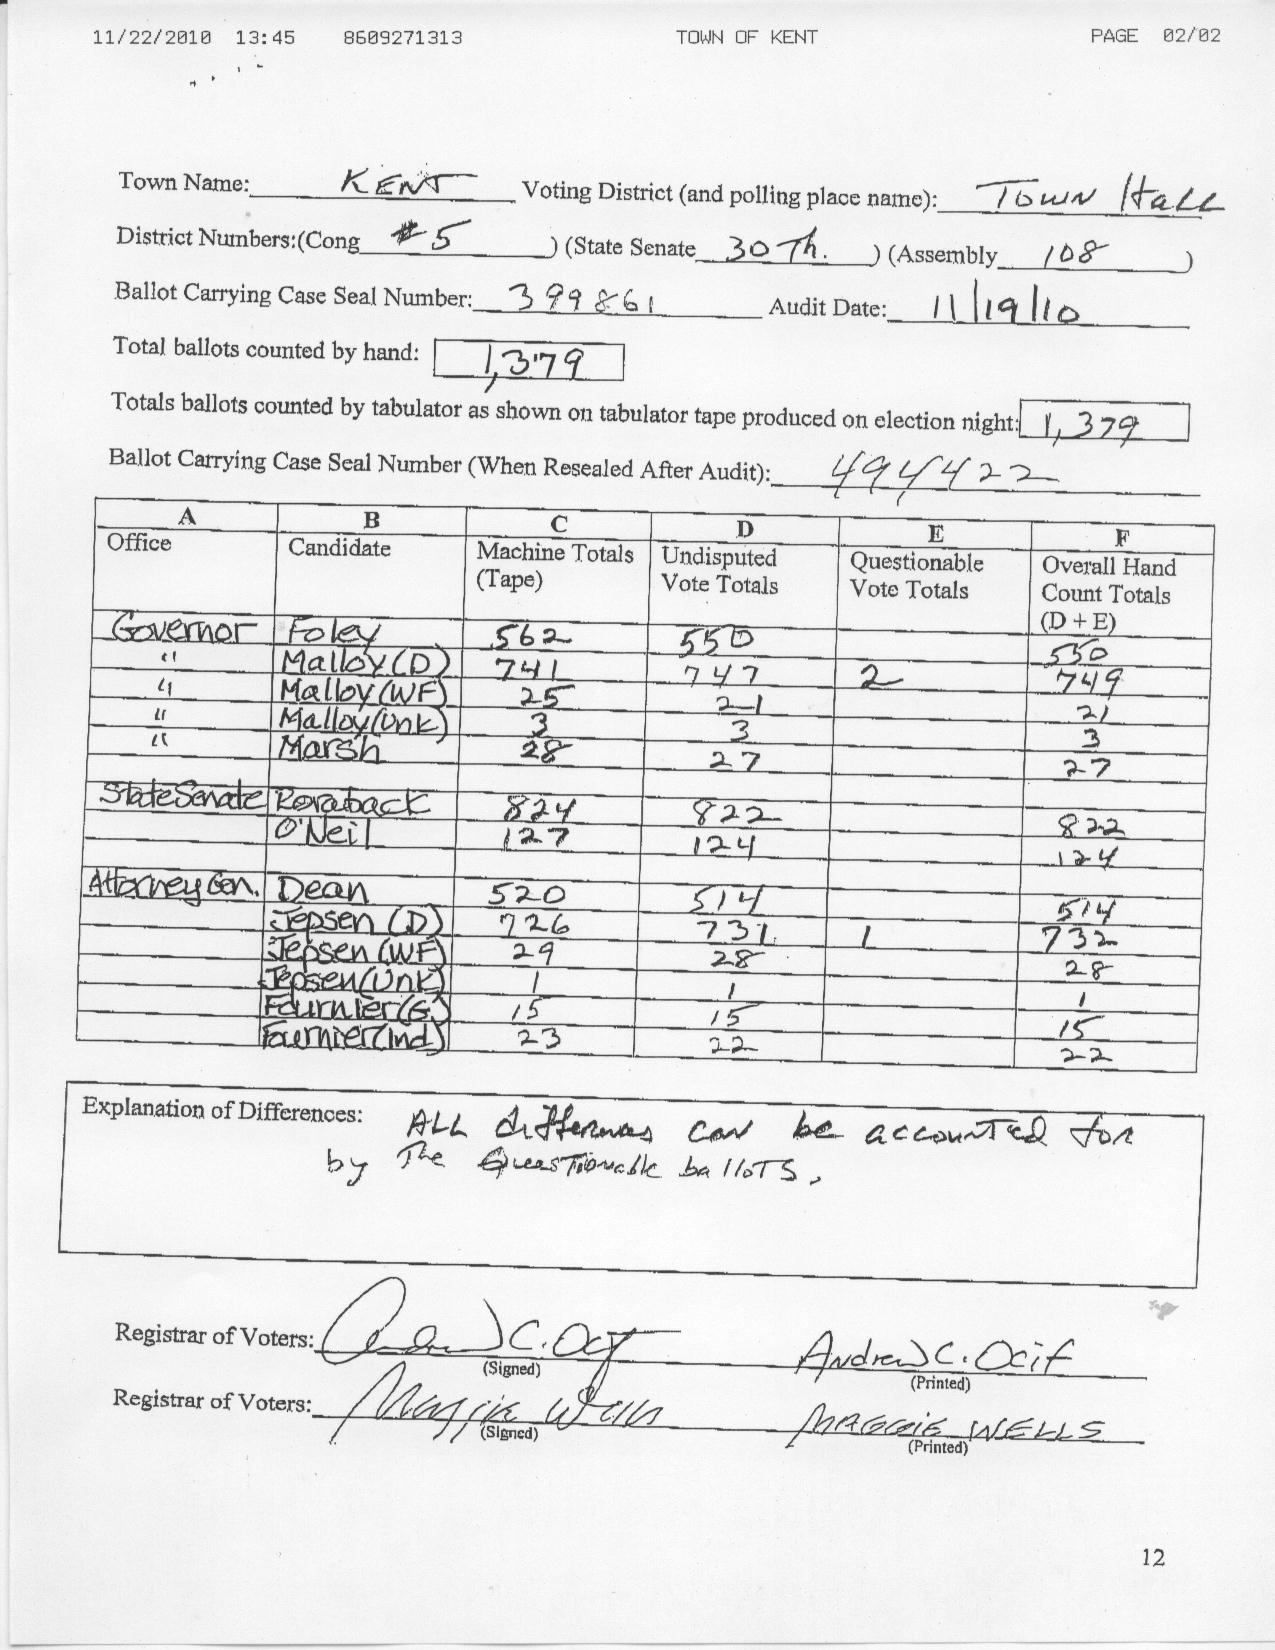 11/22/2010 13:45 8609271313 TOWN OF KENT PAGE 02/02
Town Name: KENT Voting District (and polling place name): TOWN HALL
District Numbers:(Cong #5 ) (State Senate 30Th. ) (Assembly 108 )
Ballot Carrying Case Seal Number: 399861 Audit Date: 11/19/10
Total ballots counted by hand: 1,379
Totals ballots counted by tabulator as shown on tabulator tape produced on election night: 1,379
Ballot Carrying Case Seal Number (When Resealed After Audit): 494422
A B C D E F
Office Candidate Machine Totals (Tape) Undisputed Vote Totals Questionable Vote Totals Overall Hand Count Totals (D + E)
Governor Foley 562 550 550
" Malloy (D) 741 747 2 749
" Malloy (WF) 25 21 21
" Malloy (Unk) 3 3 3
" Marsh 28 27 27
State Senate Roraback 824 822 822
O'Neil 127 124 124
Attorney Gen. Dean 520 514 514
Jepsen (D) 726 731 1 732
Jepsen (WF) 29 28 28
Jepsen (Unk) 1 1 1
Fournier (G) 15 15 15
Fournier (Ind) 23 22 22
Explanation of Differences: ALL differences can be accounted for
by The Questionable ballots.
Registrar of Voters: Andrew C. Ocif Andrew C. Ocif
(Signed) (Printed)
Registrar of Voters: Maggie Wells MAGGIE WELLS
(Signed) (Printed)
12